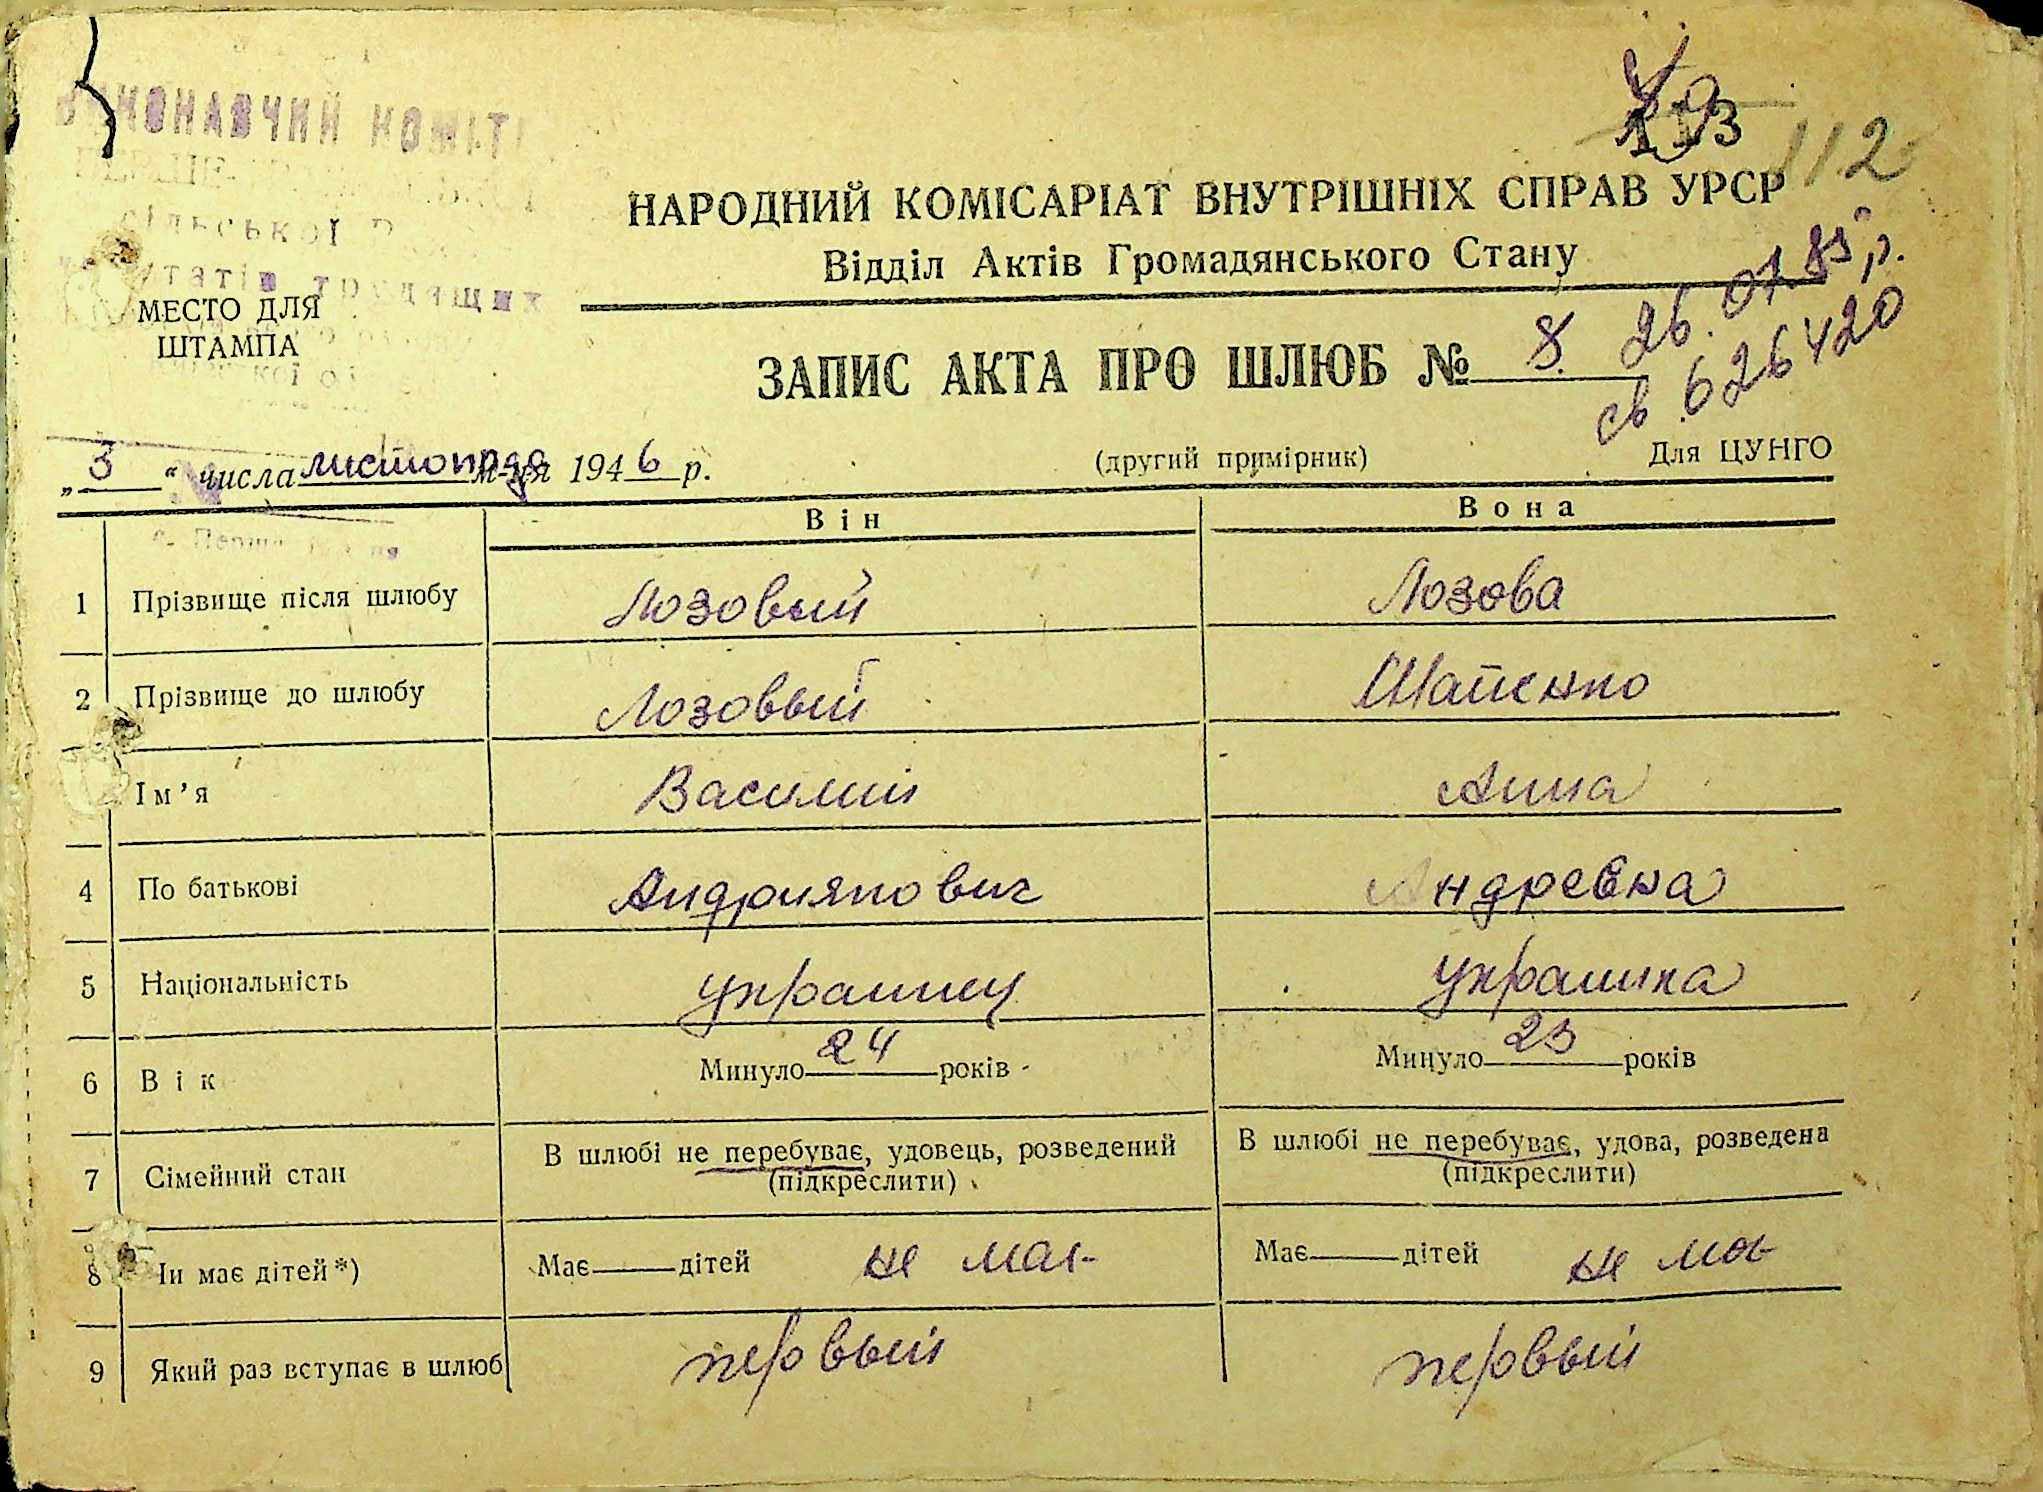 113
112
НАРОДНИЙ КОМІСАРІАТ ВНУТРІШНІХ СПРАВ УРСР
Відділ Актів Громадянського Стану
МЕСТО ДЛЯ ШТАМПА
ЗАПИС АКТА ПРО ШЛЮБ № 8.
26.07.85 р.
св 626420
„3“ числа листопада м-ця 1946 р.
(другий примірник)
Для ЦУНГО
Він Вона
1 Прізвище після шлюбу Лозовый Лозова
2 Прізвище до шлюбу Лозовый Шапенко
Ім’я Василий Анна
4 По батькові Андриянович Андреевна
5 Національність украинец украинка
6 Вік Минуло 24 років Минуло 23 років
7 Сімейний стан В шлюбі не перебуває, удовець, розведений (підкреслити) В шлюбі не перебуває, удова, розведена (підкреслити)
8 Чи має дітей*) Має дітей не має Має дітей не має
9 Який раз вступає в шлюб первый первый